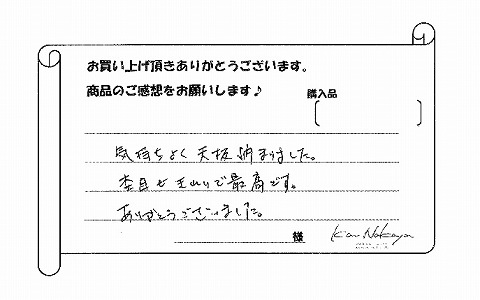 お買い上げ頂きありがとうございます。
商品のご感想をお願いします♪
購入品
気持ちよく天板納まりました。
杢目も
最高です。
ありがとうございました。
様